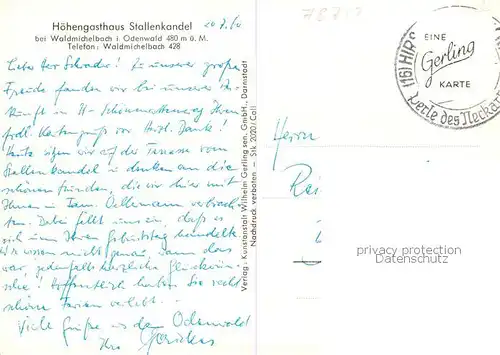 Höhengasthaus Stallenkandel
bei Waldmichelbach i. Odenwald 480 m ü. M.
Telefon: Waldmichelbach 428
Liebe Herr Schrader! Zu unserer großen
Freude fanden wir bei unserer An-
kunft in H- Ihren
frdl. Kartengruß vor. Herzl. Danke!
Heute sitzen wir auf der Terasse vom
Stallenkandel u. denken an die
schönen Stunden, die wir hier mit
Ihnen u. Fam. verbrach-
ten. Dabei fällt uns ein, daß es
sich um Ihren Geburtstag handelte
Wir wissen nicht genau, wann das
war, jedenfalls herzliche Glückwün-
sche! Hoffentlich haben Sie recht
schöne Ferien verlebt.
Viele Grüße aus dem Odenwald
Ihre
Verlag: Kunstanstalt Wilhelm Gerling sen. GmbH., Darmstadt
Nachdruck verboten — Stk 2020/Coll
EINE
Gerling
KARTE
(16) HIRS
Perle des Neckar
Herrn
Rei
privacy protection